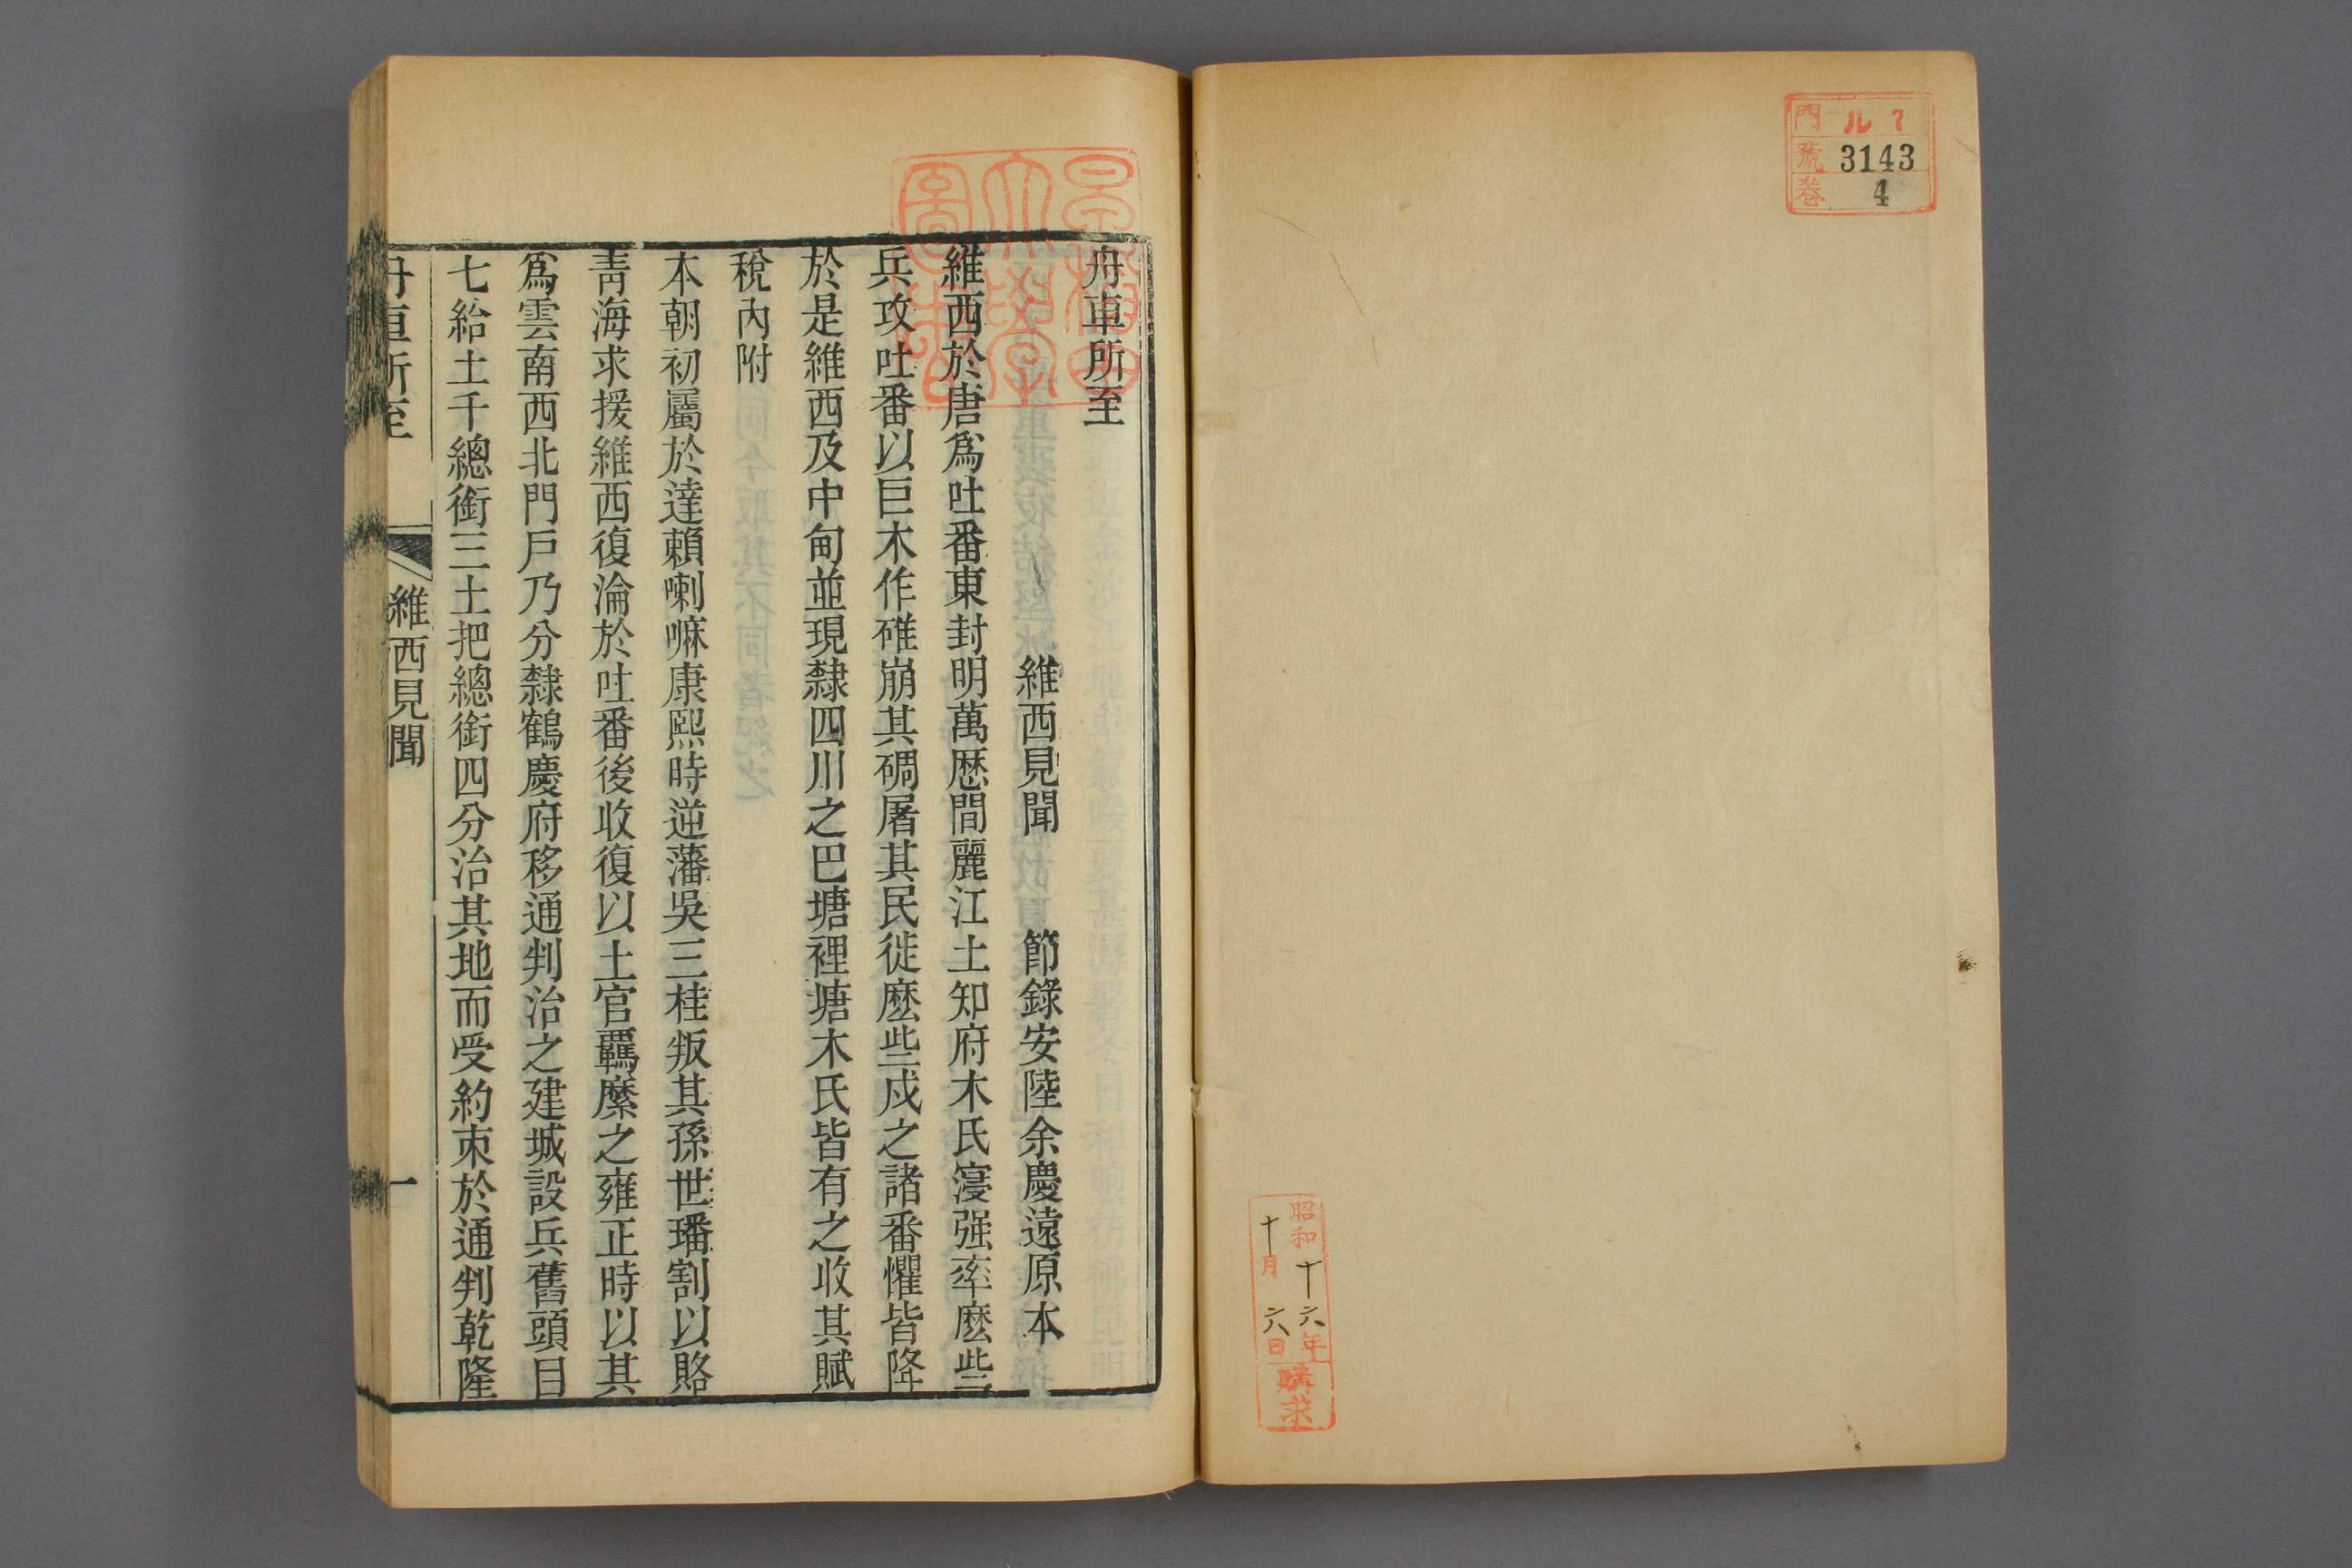 門 ル 7
號 3143
卷 4
昭和十六年
十月六日
購求
舟車所至
維西見聞 節錄安陸余慶遠原本
維西於唐爲吐番東封明萬歷間麗江土知府木氏寖强率麽些
兵攻吐番以巨木作碓崩其碉屠其民徙麽些戍之諸番懼皆降
於是維西及中甸並現隸四川之巴塘裡塘木氏皆有之收其賦
稅內附
本朝初屬於達賴喇嘛康熙時逆藩吳三桂叛其孫世璠割以賂
靑海求援維西復淪於吐番後收復以土官羈縻之雍正時以其
爲雲南西北門戶乃分隸鶴慶府移通判治之建城設兵舊頭目
七給土千總銜三土把總銜四分治其地而受約束於通判乾隆
舟車所至 維西見聞 一